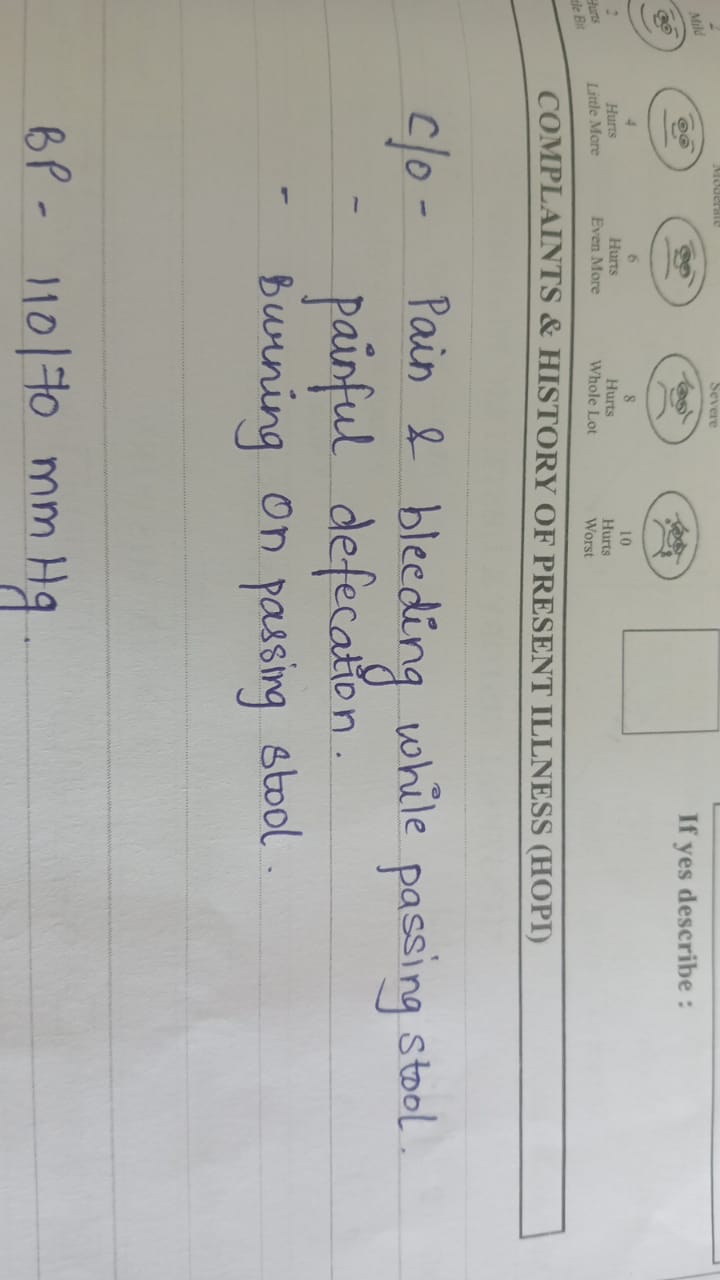 2 Mild
Moderate
Severe
2 4 6 8 10
Hurts Hurts Hurts Hurts Hurts
Little Bit Little More Even More Whole Lot Worst
If yes describe :
COMPLAINTS & HISTORY OF PRESENT ILLNESS (HOPI)
C/o - Pain & bleeding while passing stool.
- painful defecation.
- Burning on passing stool.
BP - 110/70 mmHg.